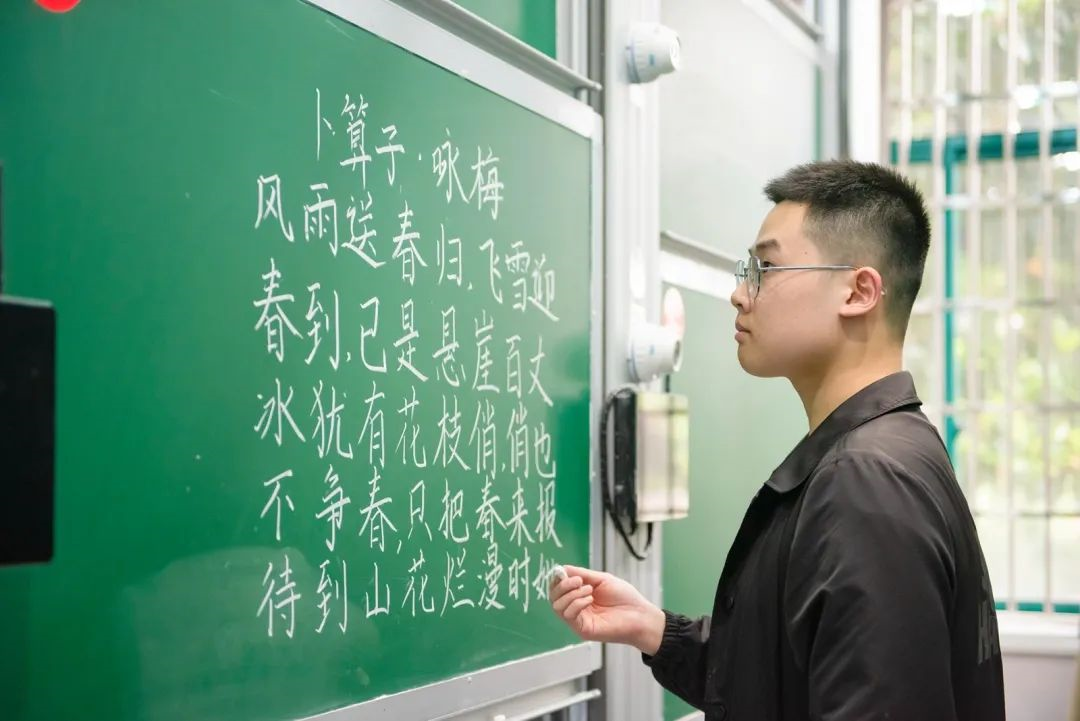 卜算子·咏梅
风雨送春归,飞雪迎
春到,已是悬崖百丈
冰,犹有花枝俏,俏也
不争春,只把春来报
待到山花烂漫时她